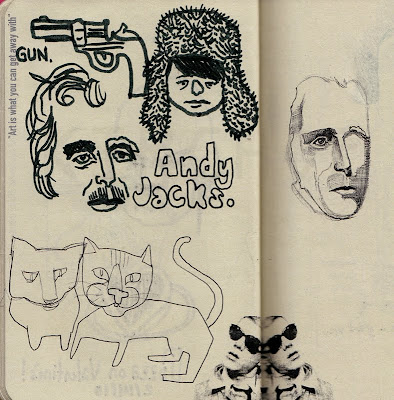 "Art is what you can get away with"
GUN.
Andy
Jacks.